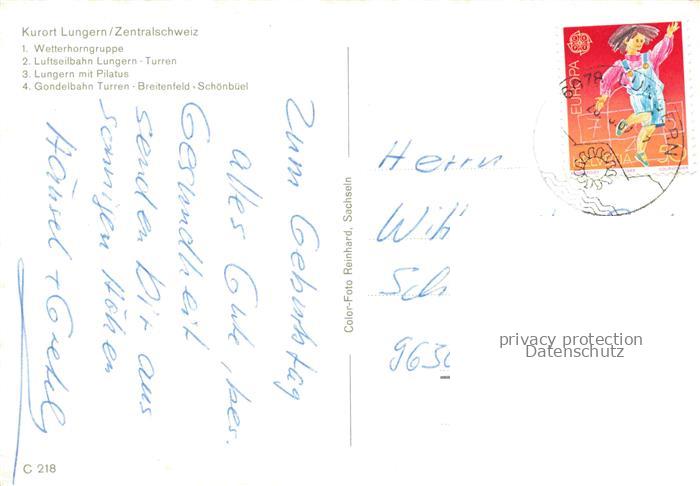 Kurort Lungern/Zentralschweiz
1. Wetterhorngruppe
2. Luftseilbahn Lungern - Turren
3. Lungern mit Pilatus
4. Gondelbahn Turren - Breitenfeld - Schönbüel
Zum Geburtstag
alles Gute, bes.
Gesundheit
senden Dir aus
sonnigen Höhen
Hänsel + Gretel
C 218
Color-Foto Reinhard, Sachseln
EUROPA
HELVETIA
6078 LUNGERN
Herrn
Wil
Sch
9630
privacy protection
Datenschutz